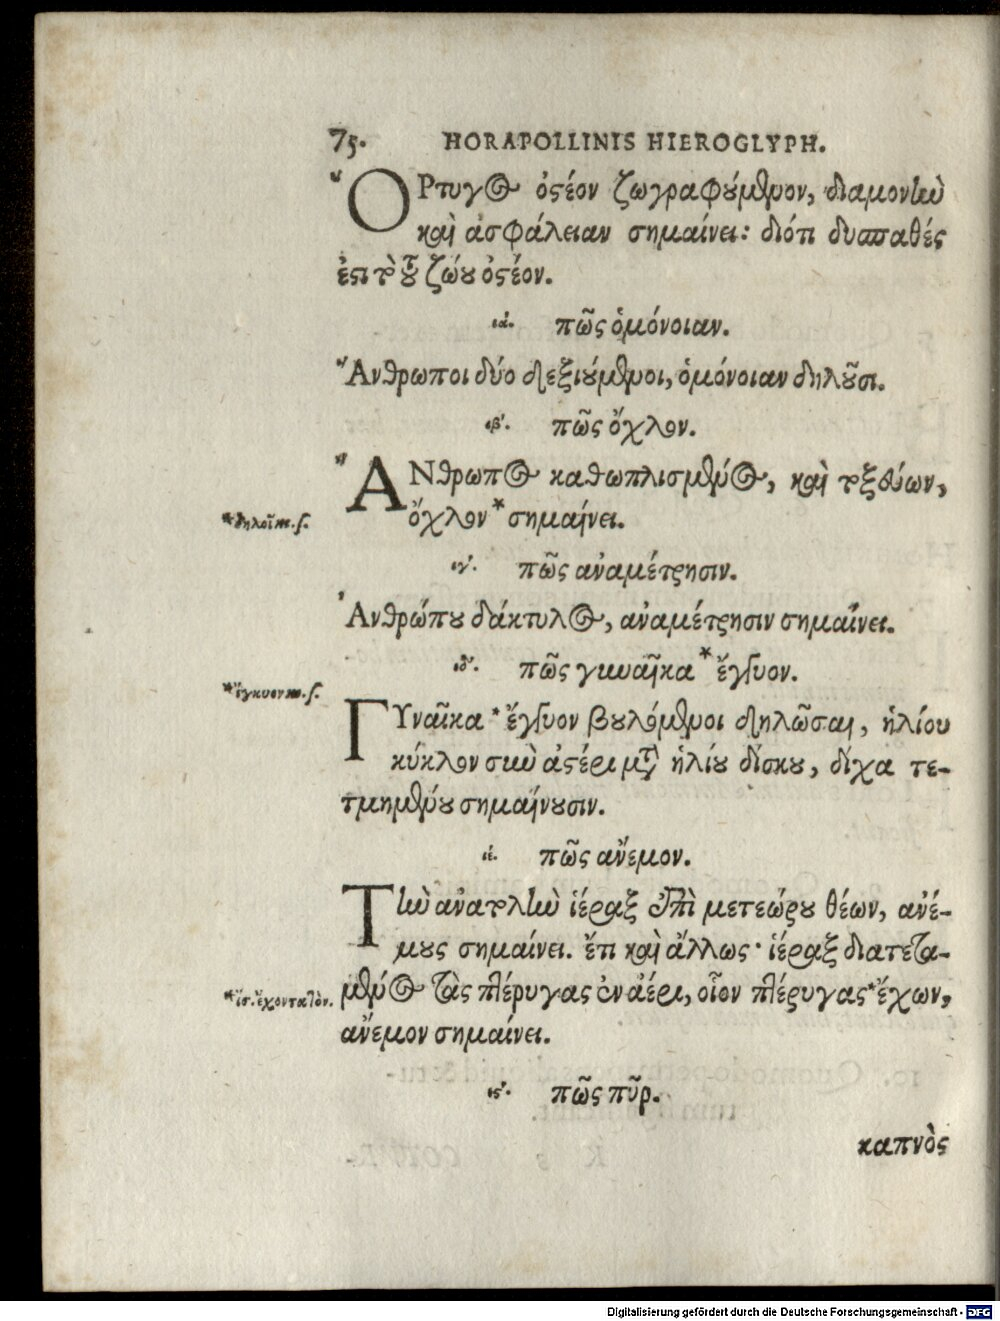 75. HORAPOLLINIS HIEROGLYPH.
ὌΡτυγος ὀστέον ζωγραφούμενον, διαμονὴν
καὶ ἀσφάλειαν σημαίνει: διότι δυσπαθές
ἐστι τὸ τοῦ ζώου ὀστέον.
ια. πῶς ὁμόνοιαν.
Ἄνθρωποι δύο δεξιούμενοι, ὁμόνοιαν δηλοῦσι.
ιβ. πῶς ὄχλον.
ἌΝθρωπος καθωπλισμένος, καὶ τοξεύων,
ὄχλον * σημαίνει.
* δηλοῖ m. s.
ιγ. πῶς ἀναμέτρησιν.
Ἀνθρώπου δάκτυλος, ἀναμέτρησιν σημαίνει.
ιδ. πῶς γυναῖκα * ἔγγυον.
* ἔγκυον m. s.
ΓΥναῖκα * ἔγγυον βουλόμενοι δηλῶσαι, ἡλίου
κύκλον σὺν ἀστέρι μετὰ ἡλίου δίσκου, δίχα τε-
τμημένου σημαίνουσιν.
ιε. πῶς ἄνεμον.
Τὴν ἀνατολὴν ἱέραξ ἐπὶ μετεώρου θέων, ἀνέ-
μους σημαίνει. ἔτι καὶ ἄλλως· ἱέραξ διατετα-
μένος τὰς πτέρυγας ἐν ἀέρι, οἷον πτέρυγας * ἔχων,
* ἴσ. ἔχοντα τὸν.
ἄνεμον σημαίνει.
ις. πῶς πῦρ.
καπνὸς
Digitalisierung gefördert durch die Deutsche Forschungsgemeinschaft - DFG